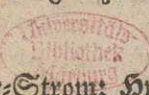 Universitäts
Bibliothek
Marburg
=Strom: H